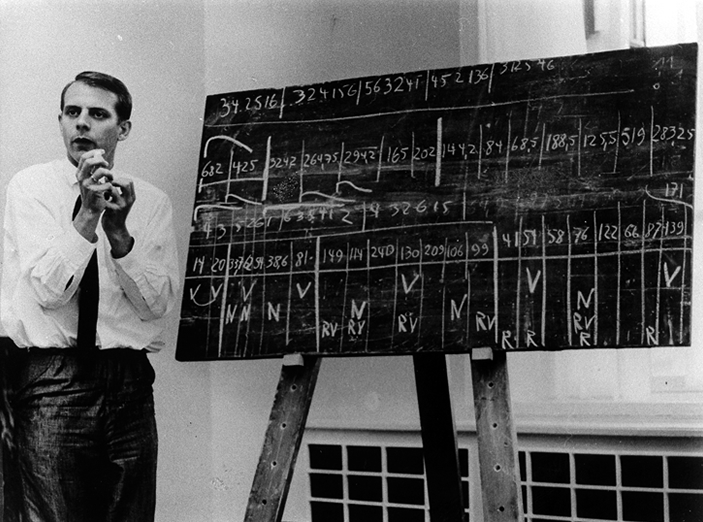 34.2516/ 324156/ 563241/ 452136/ 312546
682 425 3242 264,75 294,2 165 202 144,2 84 68,5 188,5 125,5 519 28325
171
4 3 5 2 6 1 1 6 3 5 4 1 2 4 3 2 6 1 5
14 20 38,6 81 149 114 240 130 209 106 99 41 54 58 76 122 66 87 139
V V V V V V V
N N N N N N
RV RV RV RV RV
R R R R